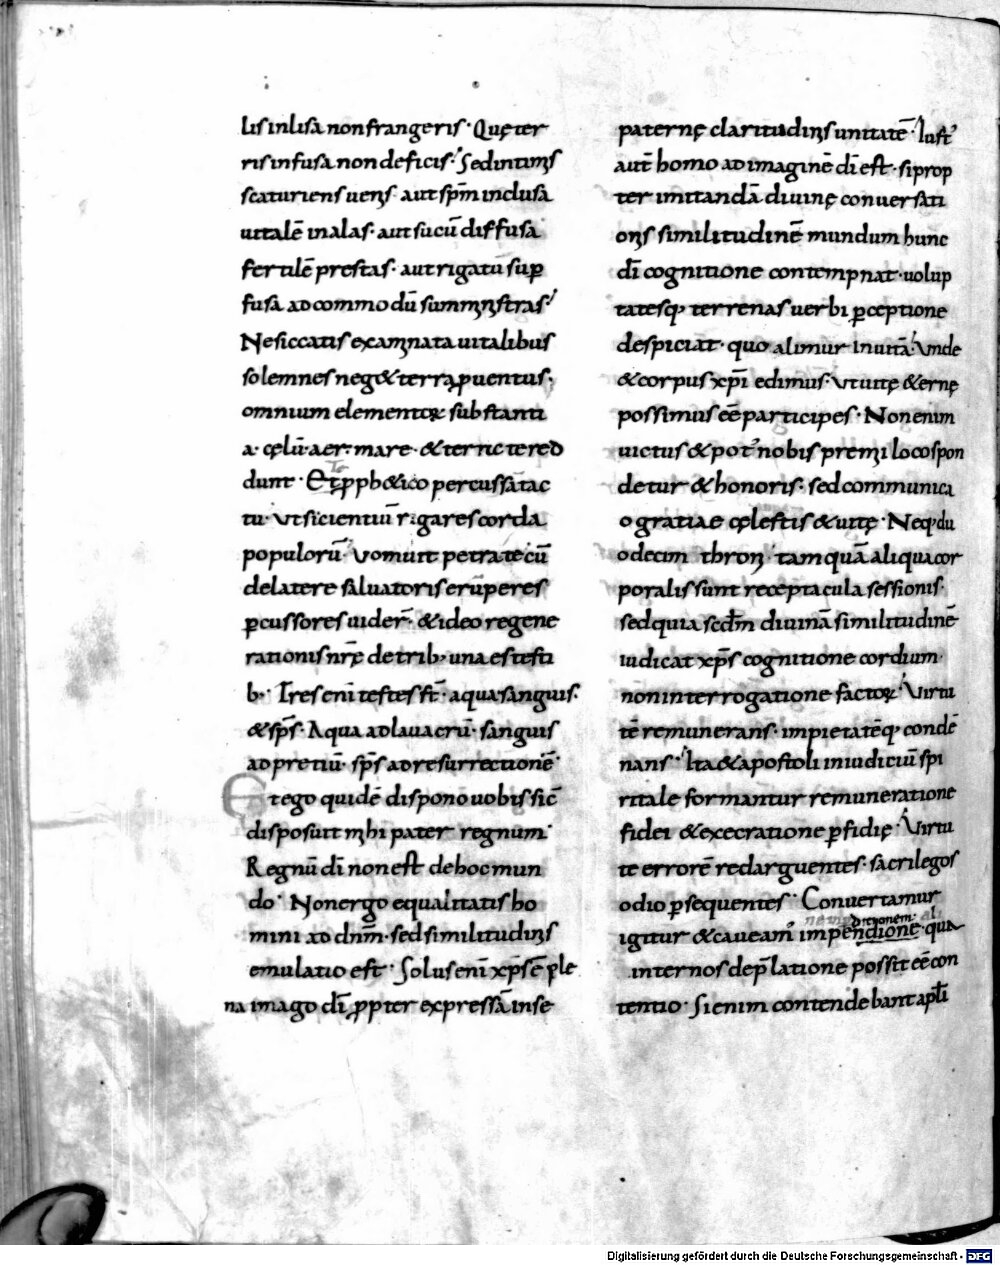 lis inlisa non frangeris· Quę ter
ris infusa non deficis· Sed intimis
scaturiens venis· aut spm̄ inclusa
uitalē inalas· aut sucū diffusa
fertilē prestas· aut rigatū sup̄
fusa ad commodū sumministras·
Ne siccatis exanimata uitalibus
solemnes neg& terra ꝓuentus·
omnium elementoꝝ substanti
a· cęlū· aer· mare· & terrę te red
dunt· ꝓph&ico percussa tac
tu· Ut sicientiū rigares corda
populorū· Vomuit petra te cū
de latere saluatoris erūperes
ꝑcussores uider̄· & ideo regene
rationis nrę̄ de trib; una es testi
b;· Tres eni testes st̄· aqua sanguis·
& sps̄· Aqua ad lauacrū· sanguis
ad pretiū· sps̄ ad resurrectionē·
Et ego quidē dispono uobis sic̄
disposuit mihi pater regnum·
Regnū dī non est de hoc mun
do· Non ergo equalitatis ho
mini ad dnm̄· sed similitudinis
emulatio est· Solus eni xps̄ ē ple
na imago dī ꝓpter expressā in se
paternę claritudinis unitatē· Iust'
aut̄ homo ad imaginē dī est· si prop
ter imitandā diuinę conuersati
onis similitudinē mundum hunc
dī cognitione contempnat· uolup
tatesq; terrenas uerbi ꝑceptione
despiciat· quo alimur in uitā· Unde
& corpus xpī edimus· ut uitę &ernę
possimus eē participes· Non enim
uictus & pot' nobis premii loco spon
detur & honoris· sed communica
o gratiae cęlestis & uitę· Neq; du
odecim throni tamquā aliqua cor
poralis sunt receptacula sessionis·
sed quia scdm̄ diuinā similitudinē
iudicat xps̄ cognitione cordium·
non interrogatione factoꝝ· Virtu
tē remunerans· impietatēq; condē
nans· Ita & apostoli in iudiciū spi
ritale formantur remuneratione
fidei & execratione ꝑfidię· Virtu
te errorē redarguentes· sacrilegos
odio ꝑsequentes· Conuertamur
igitur & caueam' impendione· qua
inter nos de p̄latione possit eē con
tentio· Si enim contendebant apłi
Digitalisierung gefördert durch die Deutsche Forschungsgemeinschaft - DFG